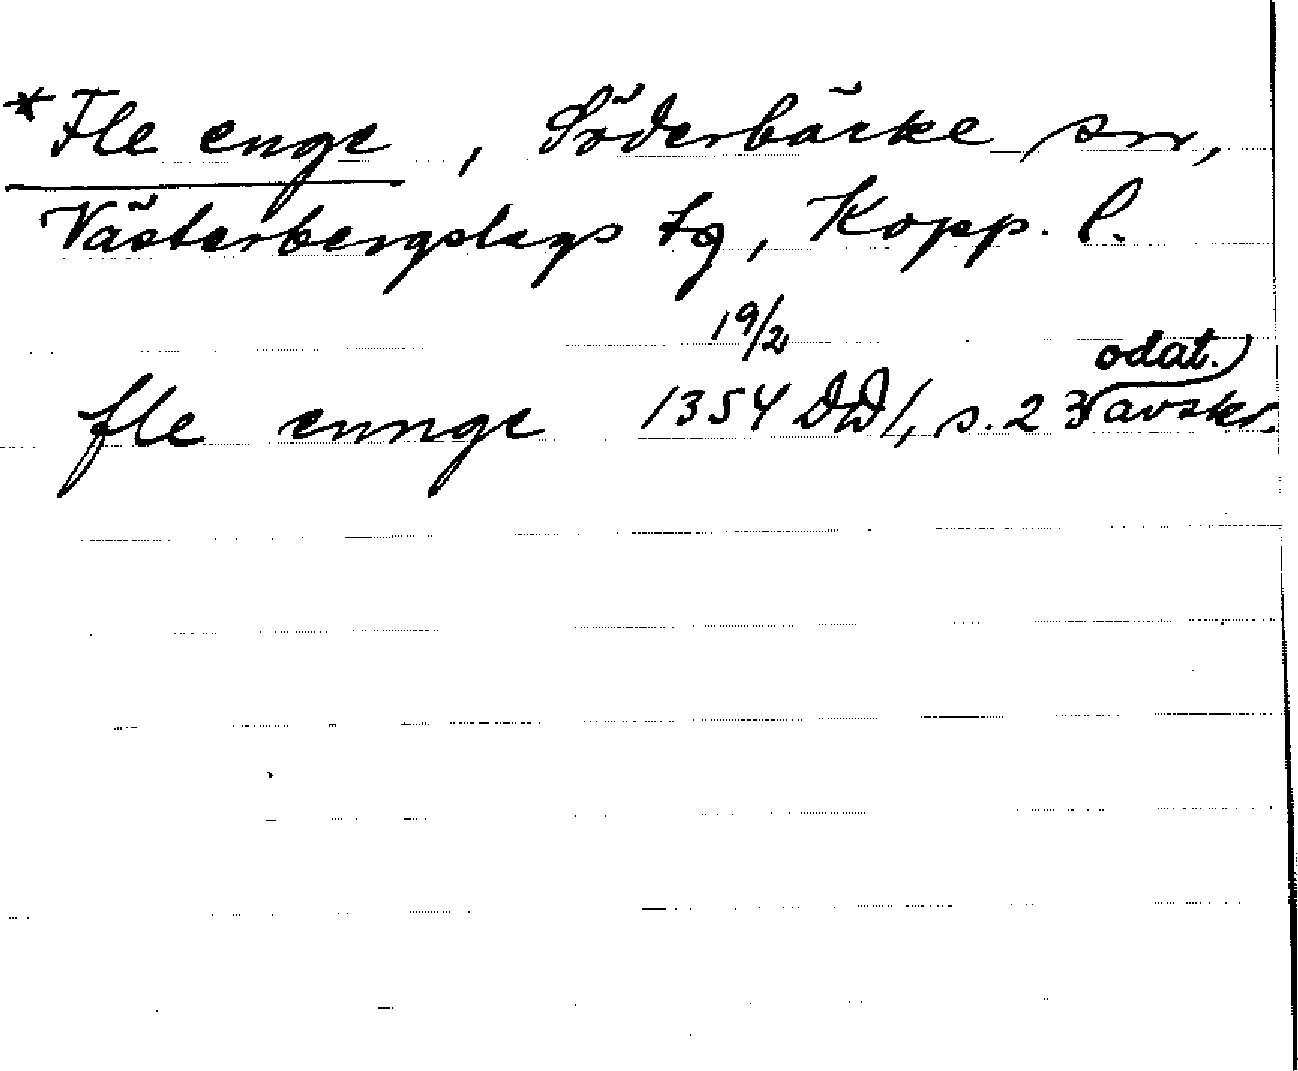 *Fle enge, Söderbärke sn,
Västerbergslags tg, Kopp. l.
fle ennge 19/2 1354 DD1, s. 2 odat. avskr.